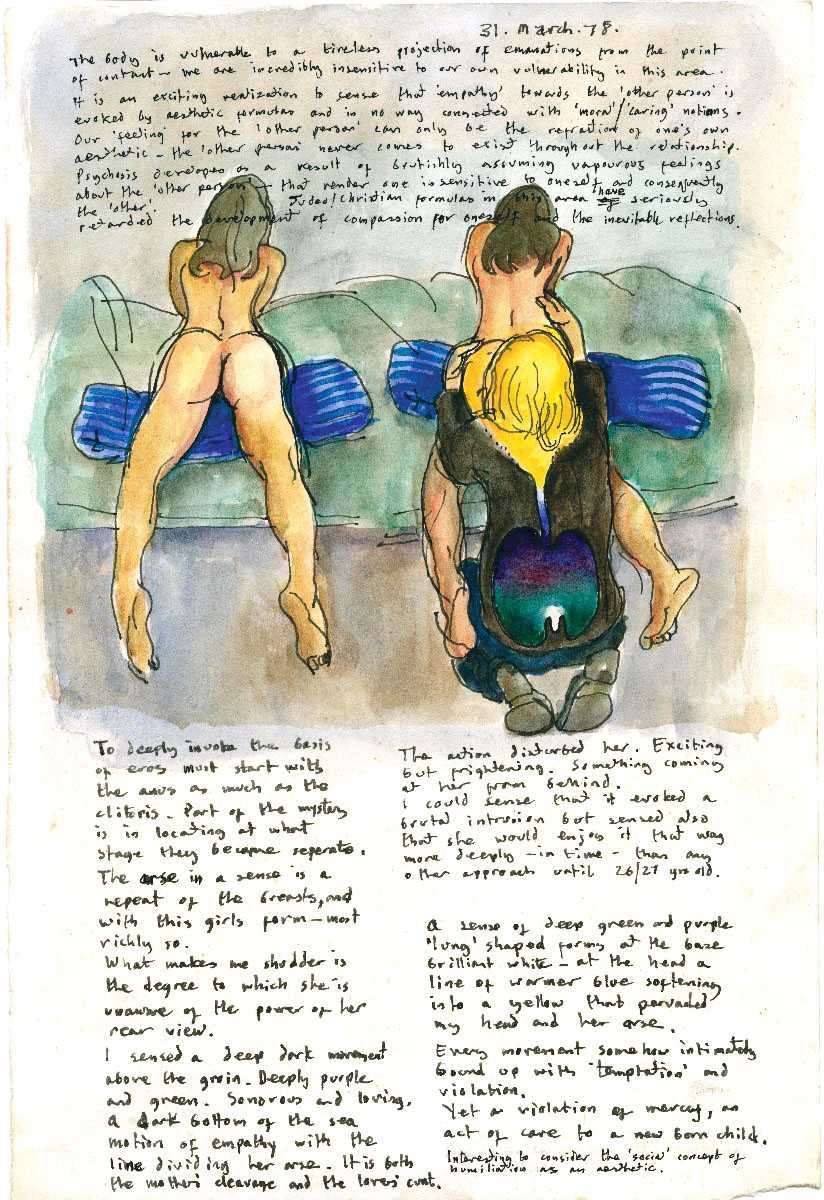 31. March. 78.
The body is vulnerable to a tireless projection of emanations from the point
of contact — we are incredibly insensitive to our own vulnerability in this area.
It is an exciting realization to sense that 'empathy' towards the 'other person' is
evoked by aesthetic formulas and in no way connected with 'moral'/'caring' notions.
Our 'feeling' for the 'other person' can only be the refraction of one's own
aesthetic — the 'other person' never comes to exist throughout the relationship.
Psychosis developes as a result of brutishly assuming vapourous feelings
about the 'other person' — that render one insensitive to oneself and consequently
the 'other'. Judeo/Christian formulas in this area have seriously
retarded the development of compassion for oneself and the inevitable reflections.
To deeply invoke the basis
of eros must start with
the anus as much as the
clitoris. Part of the mystery
is in locating at what
stage they became seperate.
The arse in a sense is a
repeat of the breasts, and
with this girls form — most
richly so.
What makes me shudder is
the degree to which she is
unaware of the power of her
rear view.
I sensed a deep dark movement
above the groin. Deeply purple
and green. Sonorous and loving.
A dark bottom of the sea
motion of empathy with the
line dividing her arse. It is both
the mothers cleavage and the lovers cunt.
The action disturbed her. Exciting
but frightening. Something coming
at her from behind.
I could sense that it evoked a
brutal intrusion but sensed also
that she would enjoy it that way
more deeply — in time — than any
other approach until 26/27 yrs old.
A sense of deep green and purple
'lung' shaped forms at the base
brilliant white — at the head a
line of warmer blue softening
into a yellow that pervaded
my head and her arse.
Every movement somehow intimately
bound up with 'temptation' and
violation.
Yet a violation of mercy, an
act of care to a new born child.
Interesting to consider the 'social' concept of
humiliation as an aesthetic.